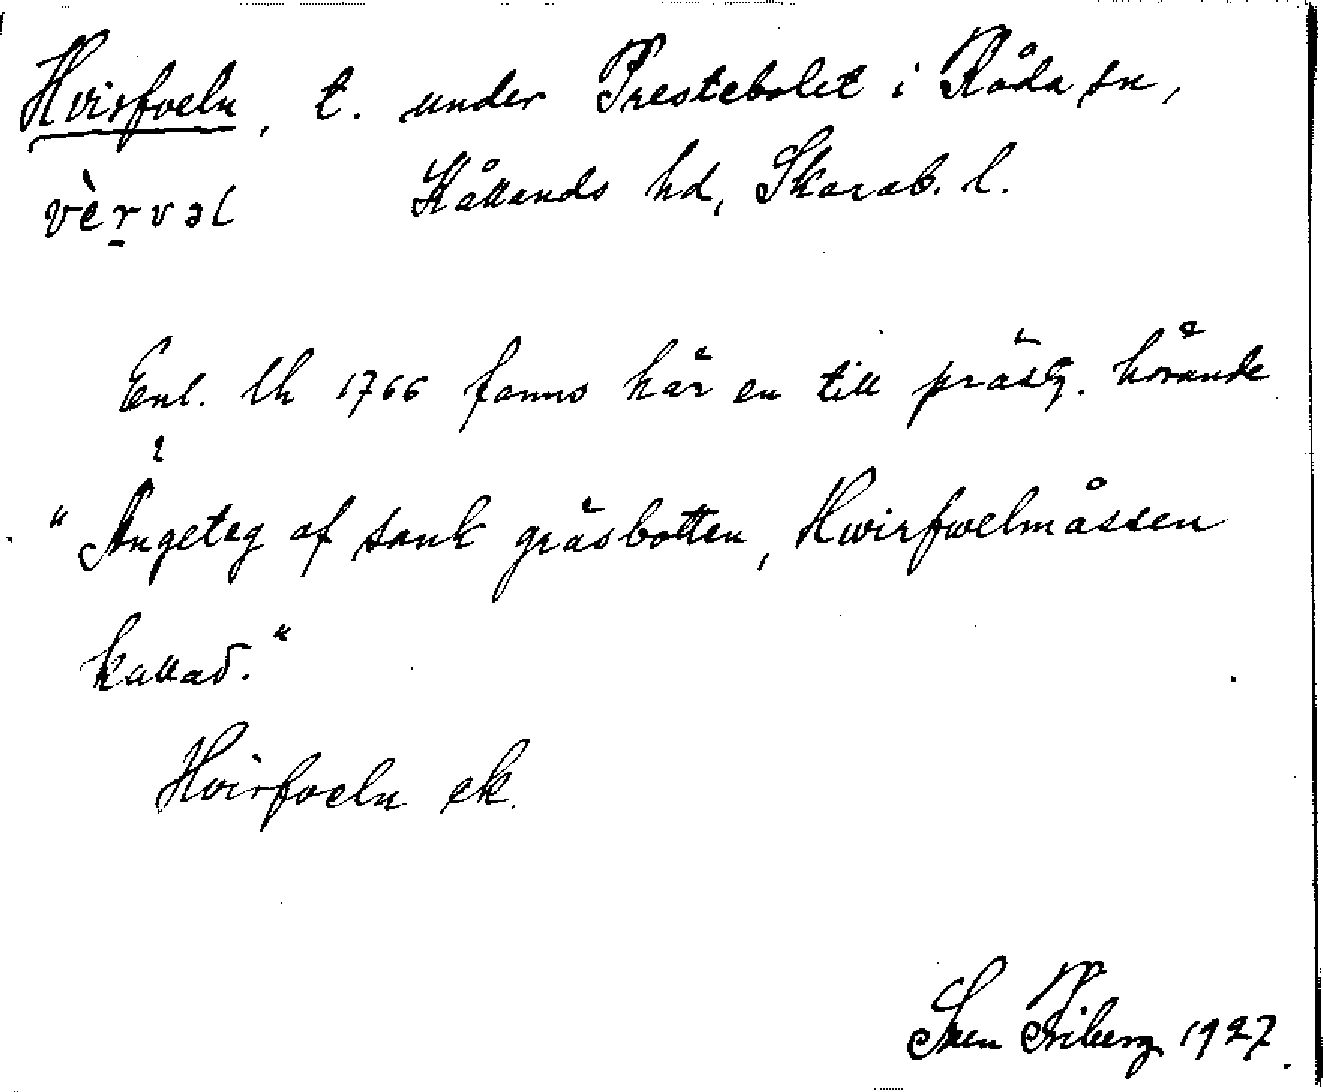 Hvirfveln, t. under Prestebolet i Råda sn,
vèrvəl Kållands hd, Skarab. l.
Enl. lh 1766 fanns här en till prästg. hörande
"Ängeteg af sank gräsbotten, Hwirfwelmåssen
kallad."
Hvirfveln ek.
Sven Friberg 1927.